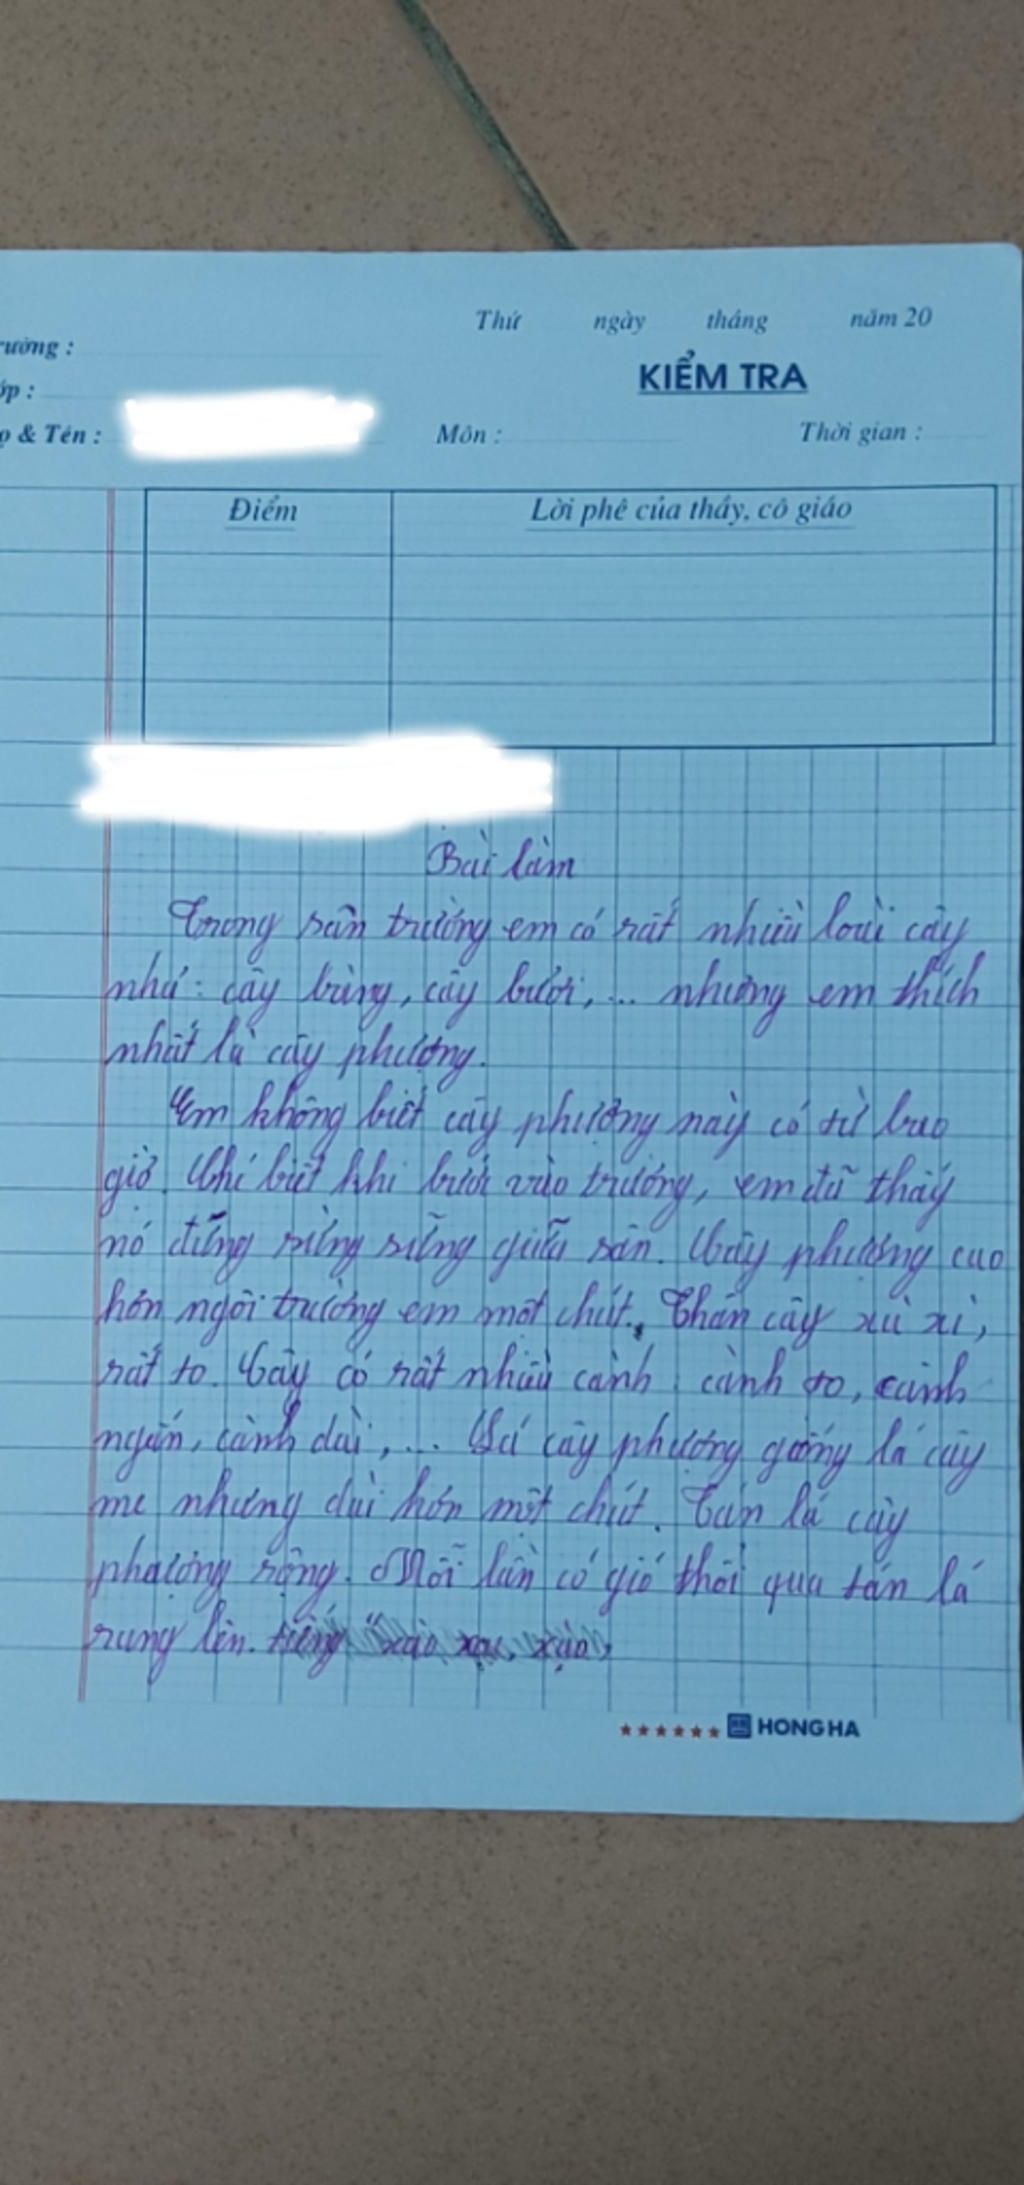 Thứ ngày tháng năm 20
rường :
KIỂM TRA
ớp :
ọ & Tên : Môn : Thời gian :
Điểm Lời phê của thầy, cô giáo
Bài làm
Trong sân trường em có rất nhiều loài cây
như: cây bàng, cây bưởi, ... nhưng em thích
nhất là cây phượng.
Em không biết cây phượng này có từ bao
giờ. Chỉ biết khi bước vào trường, em đã thấy
nó đứng sừng sững giữa sân. Cây phượng cao
hơn ngôi trường em một chút. Thân cây xù xì,
rất to. Cây có rất nhiều cành: cành to, cành
ngắn, cành dài, ... Lá cây phượng giống lá cây
me nhưng dài hơn một chút. Tán lá cây
phượng rộng. Mỗi lần có gió thổi qua tán lá
rung lên. tiếng "xào xạc, xào
HONG HA